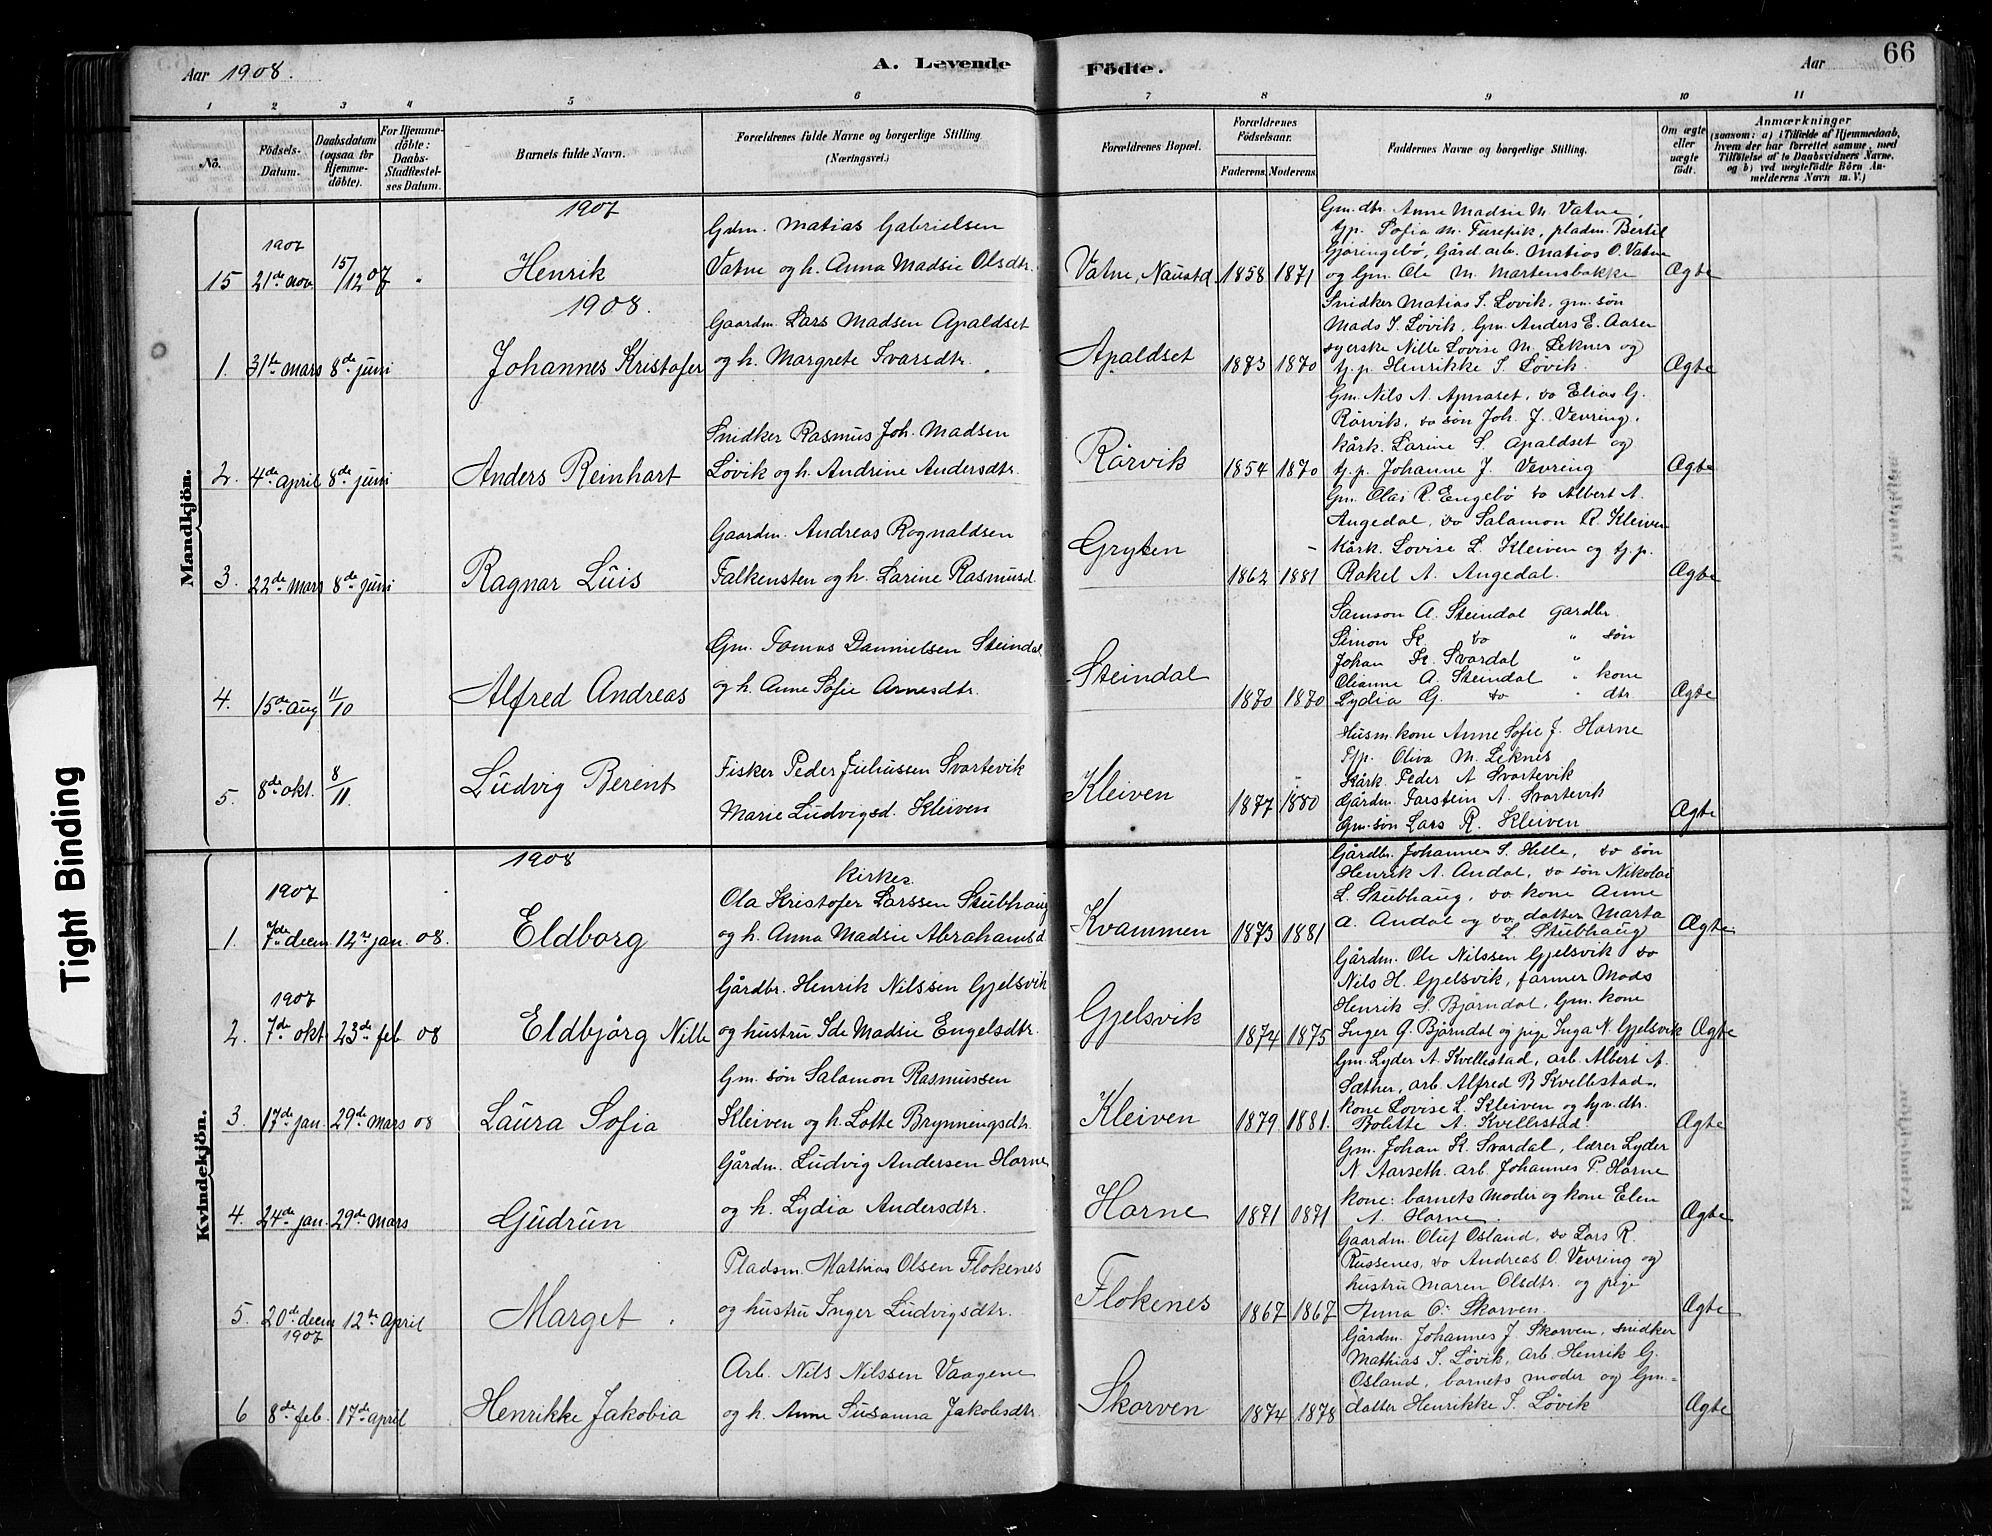 Aar 1908.
A. Levende Födte.
Aar
66
1 2 3 4 5 6 7 8 9 10 11
No.
Födsels-Datum.
Daabsdatum (ogsaa for Hjemmedöbte).
For Hjemmedöbte: Daabs-Stadfæstelses Datum.
Barnets fulde Navn.
Forældrenes fulde Navne og borgerlige Stilling. (Næringsvei.)
Forældrenes Bopæl.
Forældrenes Födselsaar.
Faderens. Moderens.
Faddernes Navne og borgerlige Stilling.
Om ægte eller uægte födt.
Anmærkninger
(saasom: a) i Tilfælde af Hjemmedaab, hvem der har forrettet samme, med Tilföielse af to Daabsvidners Navne, og b) ved uægtefödte Börn Anmelderens Navn m. V.)
Mandkjön.
1907
15 1907 21de nov. 15/12 07 " Henrik
Gdm. Matias Gabrielsen
Vatne og h. Anna Madsie Olsdtr.
Vatne, Naustd. 1858 1871
Gm. dtr. Anne Madsie M. Vatne,
tjp. Sofia M. Furevik, pladm. Bertil
Gjøringebø, Gård arb. Matios O. Vatne
og Gm. Ole M. Martensbakke
Ægte
1908.
1. 31te mars 8de juni Johannes Kristofer
Gaardm. Lars Madsen Apaldset
og h. Margrete Ivarsdtr.
Apaldset 1873 1870
Snidker Matias S. Løvik, gm. søn
Mads S. Løvik, Gm. Anders E. Aasen
syerske Nille Lovise M. Leknes og
tj. p. Henrikke S. Løvik.
Ægte
2. 4de april 8de juni Anders Reinhart
Snidker Rasmus Joh. Madsen
Løvik og h. Andrine Andersdtr.
Rørvik 1854 1870
Gm. Nils A. Apnaset, do Elias G.
Rørvik, do søn Joh. J. Vevring,
kårk. Larine S. Apaldset og
tj. p. Johanne J. Vevring
Ægte
3. 22de mars 8de juni Ragnar Luis
Gaardm. Andreas Rognaldsen
Falkensten og h. Larine Rasmusd.
Gryten 1862 1881
Gm. Olai R. Engebø do Albert A.
Angedal, do Salamon R. Kleiven
Kårk. Lovise L. Kleiven og tj. p.
Rakel A. Angedal.
Ægte
4. 15de Aug 11/10 Alfred Andreas
Gm. Tomas Danielsen Steindal
og h. Anne Sofie Arnesdtr.
Steindal 1870 1870
Samson A. Steindal gardbr.
Simon K. do " søn
Johan K. Svardal "
Olianne A. Steindal " kone
Lydia G. do " dtr.
Ægte
5. 8de okt. 8/11 Ludvig Berent
Fisker Peder Juliussen Svartevik
Marie Ludvigsd. Kleiven
Kleiven 1877 1880
Husm.kone Anne Sofie J. Horne
Tjp. Oliva M. Leknes
Kårk. Peder A Svartevik
Gårdm. Torstein A. Svartevik
Gm. søn Lars R. Kleiven
Ægte
Kvindekjön.
1908
1. 1907 7de decm 12te jan. 08. Eldborg
kirkes.
Ola Kristofer Larssen Stubhaug
og h. Anna Madsie Abrahamsd.
Kvammen 1873 1881
Gårdbr. Johannes S. Helle, do søn
Henrik A. Andal, do søn Nikolai
L. Stubhaug, do kone Anne
A. Andal og do datter Marta
L. Stubhaug
Ægte.
2. 1907 7de okt 23de feb 08 Eldbjörg Nille
Gårdbr. Henrik Nilssen Gjelsvik
og hustru Ide Madsie Engelsdtr.
Gjelsvik 1874 1875
Gårdm. Ole Nilssen Gjelsvik do
Nils H. Gjelsvik, farmer Mads
Henrik S. Bjørndal, Gm. kone
Inger G. Bjørndal og pige Inga N. Gjelsvik
Ægte
3 17de jan. 29de mars 08 Laura Sofia
Gm. søn Salamon Rasmussen
Kleiven og h. Lotte Brynningsdtr.
Kleiven 1879 1881.
Gm. Lyder A. Kvellestad, arb. Albert A.
Sæther, arb. Alfred B Kvellestad,
kone Lovise L. Kleiven og hjv. dtr.
Bolette A. Kvellestad
Ægte
4. 24de jan. 29de mars Gudrun
Gårdm. Ludvig Andersen Horne
og h. Lydia Andersdtr.
Horne 1871 1871
Gm. Johan K. Svardal, lærer Lyder
N. Aarseth. arb. Johannes P. Horne
kone: barnets moder og kone Elen
A. Horne.
Ægte
5. 20de decm 1907 12te April Marget.
Pladsm. Mathias Olsen Flokenes
og hustru Inger Ludvigsdtr.
Flokenes 1867 1867
Gaardm. Oluf Osland, do Lars R.
Russenes, do Andreas O. Vevring og
hustru Maren Olsdtr. og pige
Anna O. Skorven.
Ægte
6 8de feb. 17de april Henrikke Jakobia
Arb. Nils Nilssen Vaagene
og h. Anne Susanna Jakobsdtr.
Skorven 1874 1878
Gårdm. Johannes J. Skorven, snidker
Mathias S. Løvik, arb. Henrik G.
Osland, barnets moder og Gm.-
datter Henrikke S. Løvik
Ægte
Tight Binding